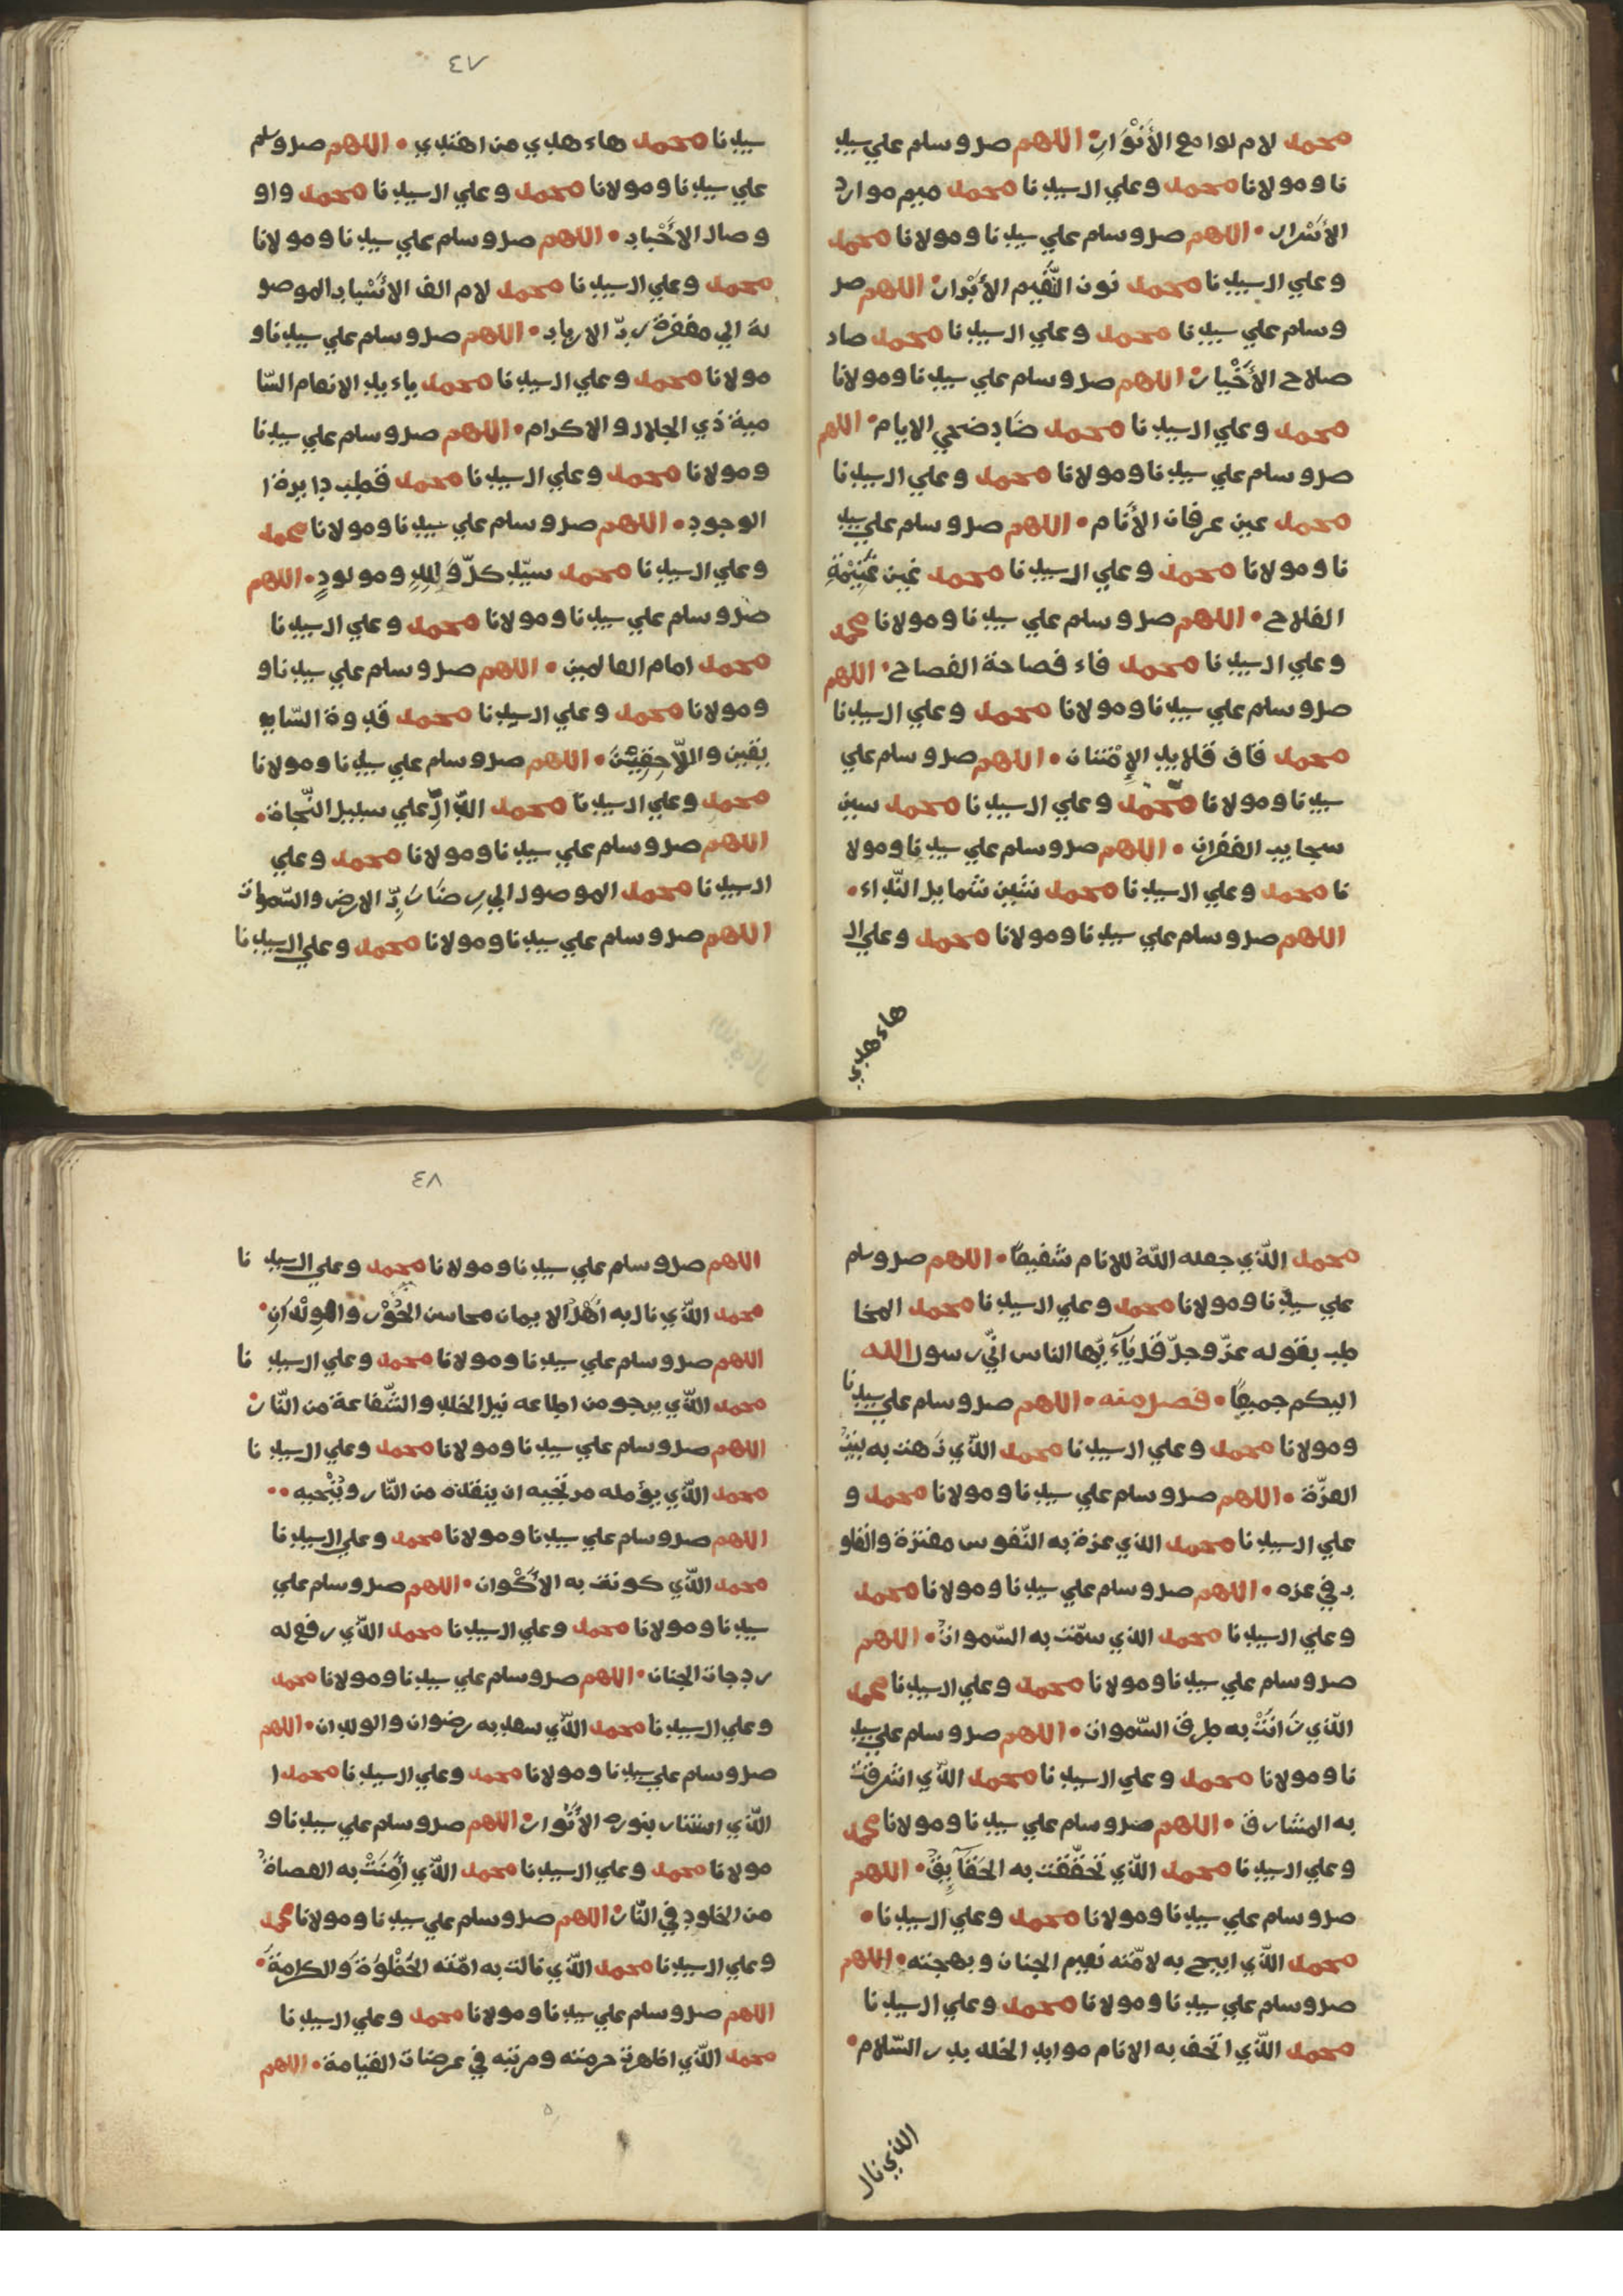 محمد لام لوامع الأَنْوَارِ • اللهم صل وسلم علي سيد
نا ومولانا محمد وعلي ال سيدنا محمد ميم موارد
الأَسْرار • اللهم صل وسلم علي سيدنا ومولانا محمد
وعلي ال سيدنا محمد نون النَّعيم الأَبْرار • اللهم صل
وسلم علي سيدنا محمد وعلي ال سيدنا محمد صاد
صلاح الأَخْيار • اللهم صل وسلم علي سيدنا ومولانا
محمد وعلي ال سيدنا محمد ضَاد ضحي الايام • اللهم
صل وسلم علي سيدنا ومولانا محمد وعلي ال سيدنا
محمد عين عرفان الأَنام • اللهم صل وسلم علي سيد
نا ومولانا محمد وعلي ال سيدنا محمد غين غَنِيْمَةِ
الفلاح • اللهم صل وسلم علي سيدنا ومولانا محمد
وعلي ال سيدنا محمد فاء فصاحة الفصاح • اللهم
صل وسلم علي سيدنا ومولانا محمد وعلي ال سيدنا
محمد قاف قلايد الإِمْتنان • اللهم صل وسلم علي
سيدنا ومولانا محمّد وعلي ال سيدنا محمد سين
سحايب الغفران • اللهم صل وسلم علي سيدنا ومولا
نا محمد وعلي ال سيدنا محمد شين شمايل النّداء •
اللهم صل وسلم علي سيدنا ومولانا محمد وعلي ال
هاء هدي
٤٧
سيدنا محمد هاء هدي من اهتدي • اللهم صل وسلم
علي سيدنا ومولانا محمد وعلي ال سيدنا محمد واو
وصال الاَحْباب • اللهم صل وسلم علي سيدنا ومولانا
محمد وعلي ال سيدنا محمد لام الف الاَسْباب الموصو
لة الي مغفرة ربّ الارباب • اللهم صل وسلم علي سيدنا و
مولانا محمد وعلي ال سيدنا محمد ياء يد الانعام السّا
مية ذي الجلال والاكرام • اللهم صل وسلم علي سيدنا
ومولانا محمد وعلي ال سيدنا محمد قطب دايرة ا
الوجود • اللهم صل وسلم علي سيدنا ومولانا محمد
وعلي ال سيدنا محمد سيّد كلّ وَالِدِ ومولودٍ • اللهم
صل وسلم علي سيدنا ومولانا محمد وعلي ال سيدنا
محمد امام العالمين • اللهم صل وسلم علي سيدنا و
ومولانا محمد وعلي ال سيدنا محمد قدوة السّا
بقين واللّاحِقِيْنَ • اللهم صل وسلم علي سيدنا ومولانا
محمد وعلي ال سيدنا محمد الدّالِّ علي سبيل النّجاة •
اللهم صل وسلم علي سيدنا ومولانا محمد وعلي
ال سيدنا محمد الموصول الي رِضَا رَبِّ الارض والسّموات
اللهم صل وسلم علي سيدنا ومولانا محمد وعلي ال سيدنا
محمد الّذي جعله اللّهُ للانام شَفيعًا • اللهم صل وسلم
علي سيدنا ومولانا محمد وعلي ال سيدنا محمد المخا
طب بقوله عزّ وجلّ قل يَآءَيّها الناس انّي رسول الله
اليكم جميعًا • فصل منه • اللهم صل وسلم علي سيدنا
ومولانا محمد وعلي ال سيدنا محمد الّذي
العزّة • اللهم صل وسلم علي سيدنا ومولانا محمد و
علي ال سيدنا محمد الذي عزة به النّفوس معتزة والقلو
ب في عزه • اللهم صل وسلم علي سيدنا ومولانا محمد
وعلي ال سيدنا محمد الذي سمّت به السّموات • اللهم
صل وسلم علي سيدنا ومولانا محمد وعلي ال سيدنا محمد
الّذي زَانَتْ به طرق السّموات • اللهم صل وسلم علي سيد
نا ومولانا محمد وعلي ال سيدنا محمد الّذي اشرقت
به المشارق • اللهم صل وسلم علي سيدنا ومولانا محمد
وعلي ال سيدنا محمد الّذي تحقّقت به الحَقَآيِقُ • اللهم
صل وسلم علي سيدنا ومولانا محمد وعلي ال سيدنا •
محمد الّذي ابيح به لامّته نعيم الجنان وبهجته • اللهم
صل وسلم علي سيدنا ومولانا محمد وعلي ال سيدنا
محمد الّذي اتحف به الانام موايد الخلد بدر السّلام •
الذي نال
٤٨
اللهم صل وسلم علي سيدنا ومولانا محمد وعلي ال سيد نا
محمد الّذي نال به اَهْلُ الايمان محاسن الحُوْر والوِلْدَانِ •
اللهم صل وسلم علي سيدنا ومولانا محمد وعلي ال سيد نا
محمد الّذي يرجو من اطاعه نيل الخلد والشّفاعة من النّار •
اللهم صل وسلم علي سيدنا ومولانا محمد وعلي ال سيد نا
محمد الّذي يؤمله مرتجيه ان ينقذه من النّار ويُنْجيه ••
اللهم صل وسلم علي سيدنا ومولانا محمد وعلي ال سيدنا
محمد الّذي كونت به الأَكْوان • اللهم صل وسلم علي
سيدنا ومولانا محمد وعلي ال سيدنا محمد الّذي رفع له
ردجات الجنان • اللهم صل وسلم علي سيدنا ومولانا محمد
وعلي ال سيدنا محمد الّذي سعد به رضوان والولدان • اللهم
صل وسلم علي سيدنا ومولانا محمد وعلي ال سيدنا محمد ا
الّذي استنار بنوره الأَنْوار • اللهم صل وسلم علي سيدنا و
مولانا محمد وعلي ال سيدنا محمد الّذي أَمِنَتْ به العصاةُ
من الخلود في النّار • اللهم صل وسلم علي سيدنا ومولانا محمد
وعلي ال سيدنا محمد الّذي نالت به امّته الحَظْوَةَ والكرامةَ •
اللهم صل وسلم علي سيدنا ومولانا محمد وعلي ال سيدنا
محمد الّذي اظهرت حرمته ومرتبه في عرضات القيامة • اللهم